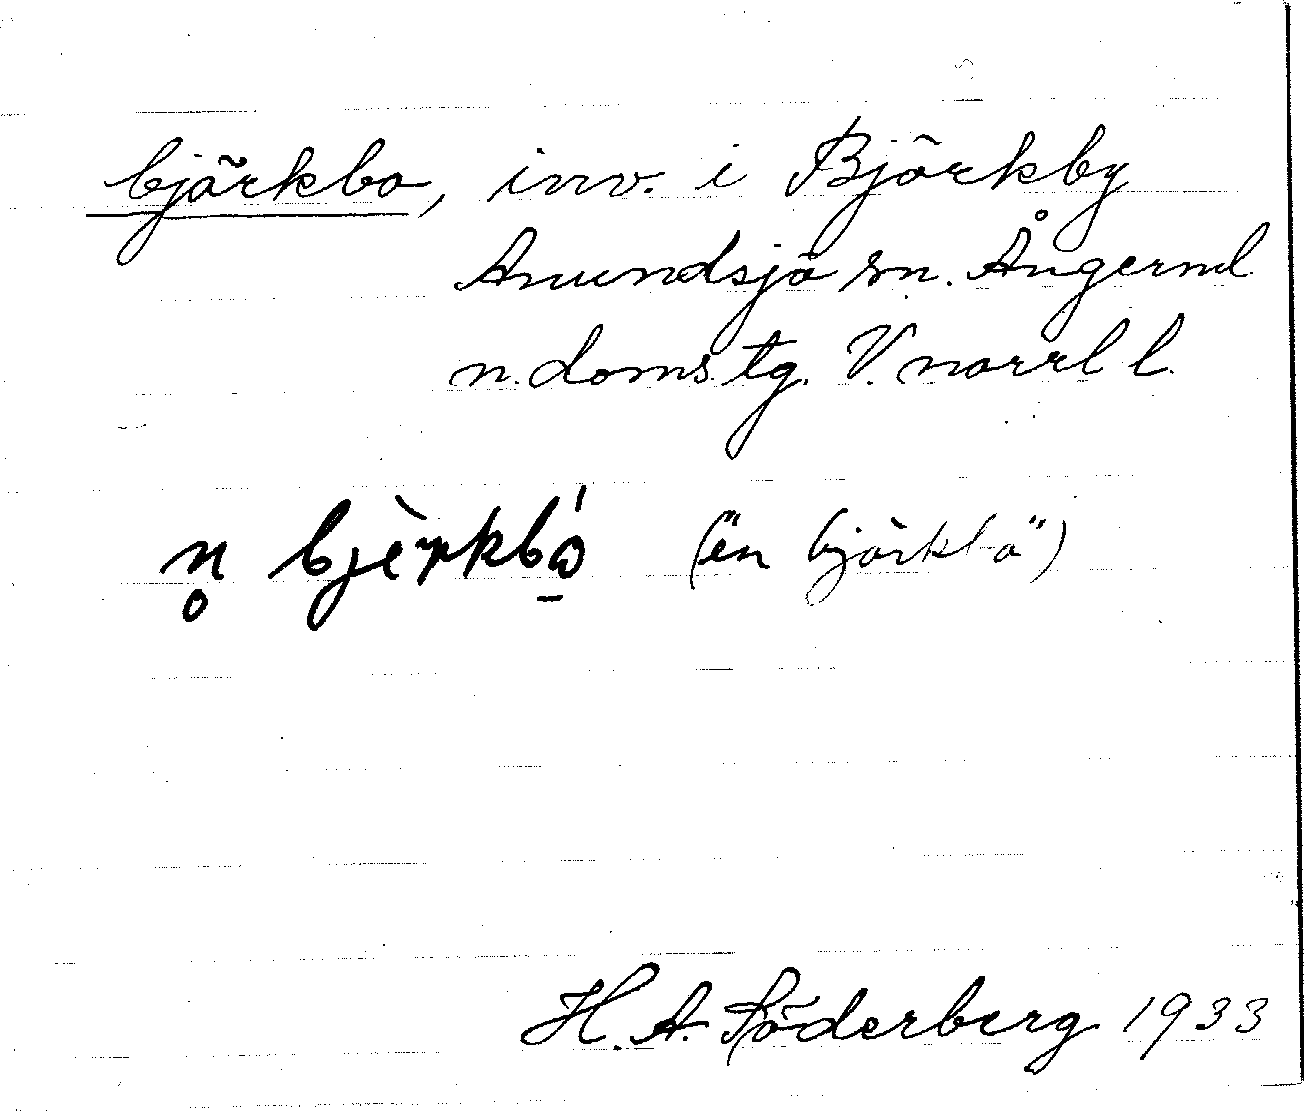 björkbo, inv. i Björkby
Anundsjö sn. Ångerml
n. doms. tg. V. norrl l.
n̥ bjèrkbó̱ ("en björkbo")
H. A. Söderberg 1933